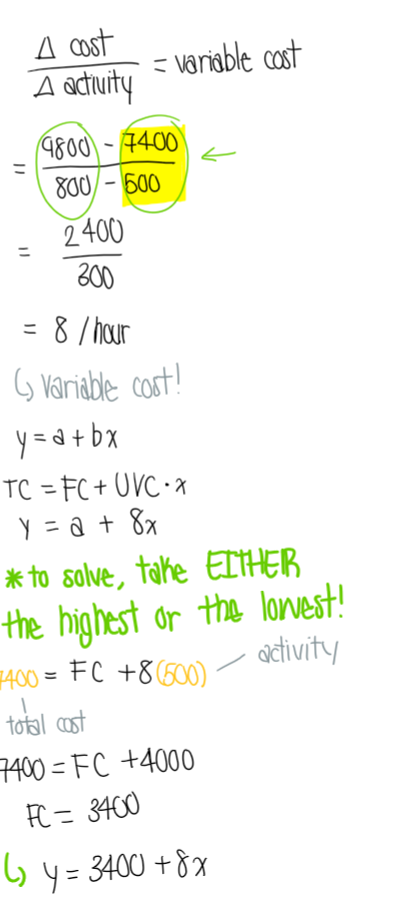 Δ cost
Δ activity
= variable cost
= 9800 - 7400
800 - 500
= 2400
300
= 8 /hour
↳ variable cost!
y = a + bx
TC = FC + UVC · x
y = a + 8x
*to solve, take EITHER
the highest or the lowest!
7400 = FC + 8(500) activity
total cost
7400 = FC + 4000
FC = 3400
↳ y = 3400 + 8x